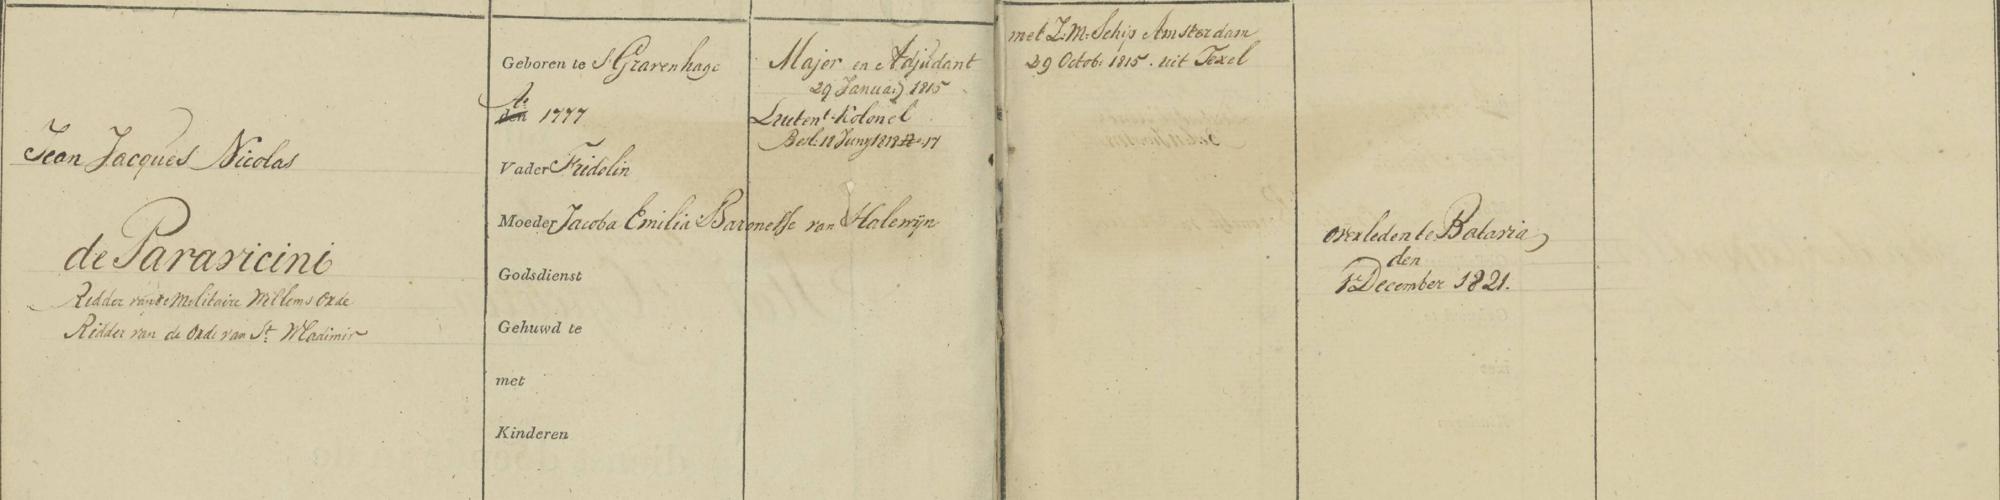 Jean Jacques Nicolas
de Paravicini
Ridder van de Militaire Willems Orde
Ridder van de Orde van St. Wladimir
Geboren te 's Gravenhage
Ao. den 1777
Vader Fridolin
Moeder Jacoba Emilia Baronesse van Halewijn
Godsdienst
Gehuwd te
met
Kinderen
Major en Adjudant
29 Januarij 1815
Luitent. Kolonel
Besl. 18 Juny 1818 No. 17
met Z.M. Schip Amsterdam
29 Octob. 1815. uit Texel
overleden te Batavia
den
1 December 1821.